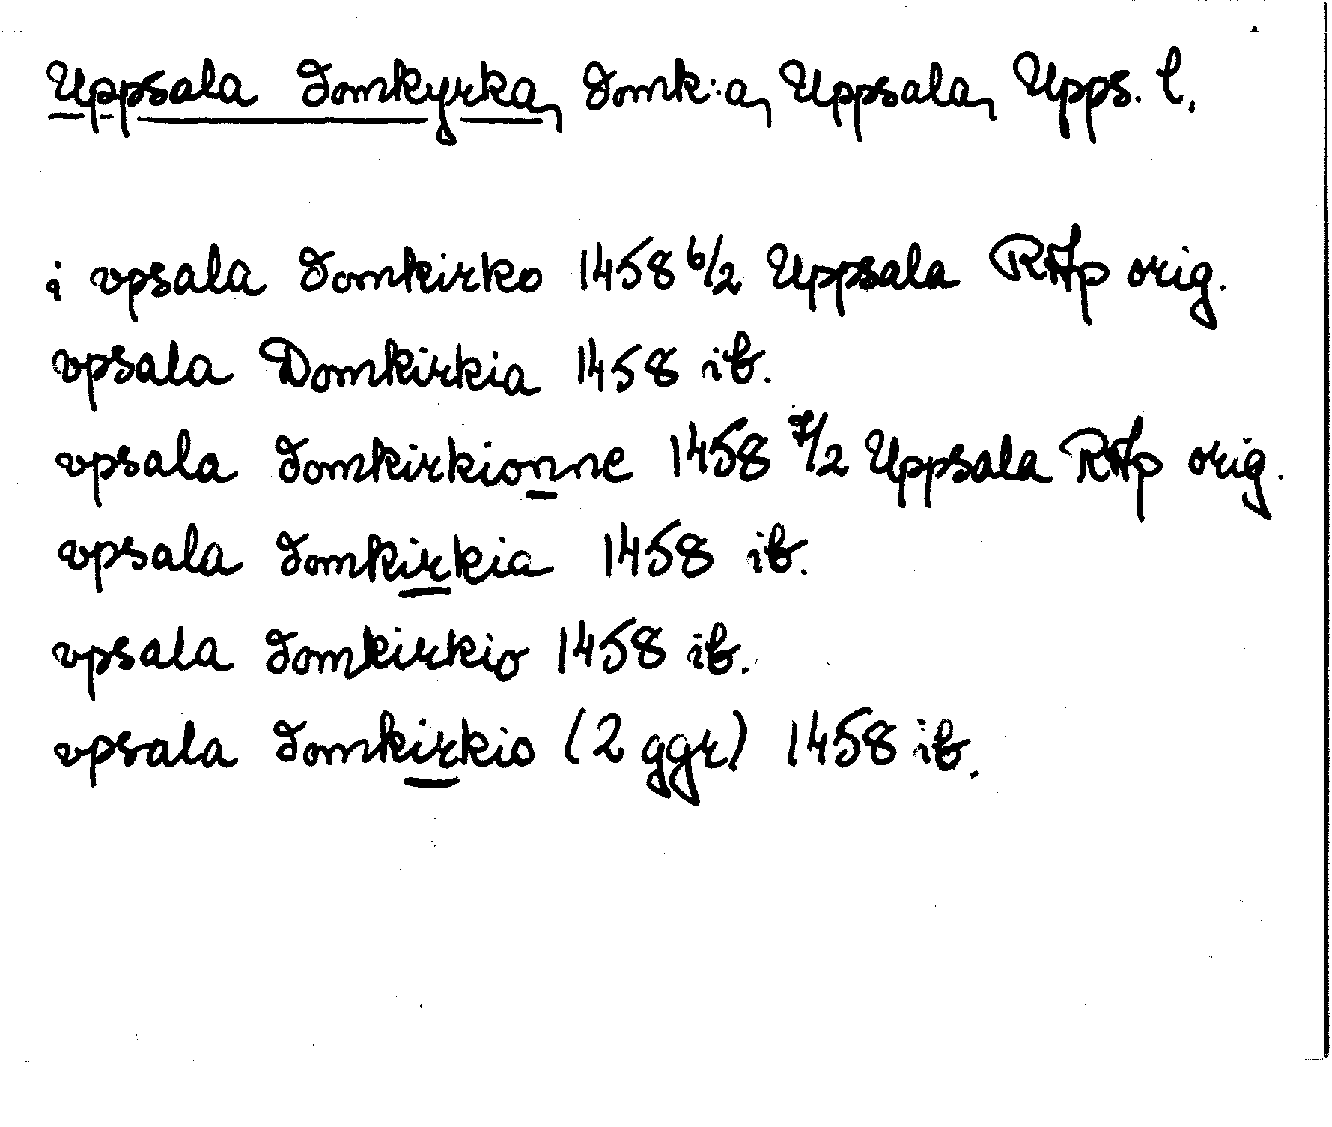 Uppsala domkyrka, domk:a, Uppsala, Upps. l.
i vpsala domkirko 1458 6/2 Uppsala RAp orig.
vpsala Domkirkia 1458 ib.
vpsala domkirkionne 1458 7/2 Uppsala RAp orig.
vpsala domkirkia 1458 ib.
vpsala domkirkio 1458 ib.
vpsala domkirkio (2 ggr) 1458 ib.